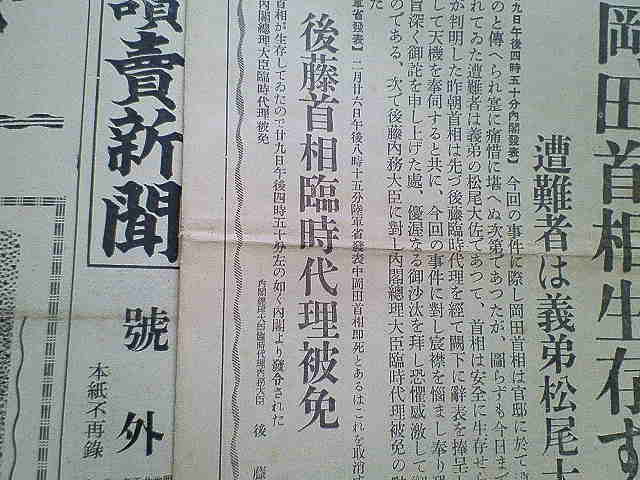 岡田首相生存す
遭難者は義弟松尾大
九日午後四時五十分内閣發表】 今回の事件に際し岡田首相は官邸に於て
のと傳へられ寔に痛惜に堪へぬ次第であつたが、圖らずも今日まで
れてゐた遭難者は義弟の松尾大佐であつて、首相は安全に生存せら
が判明した昨朝首相は先づ後藤臨時代理を經て闕下に辭表を捧呈し
して天機を奉伺すると共に、今回の事件に對し宸襟を悩まし奉り
旨深く御詫を申し上げた處、優渥なる御沙汰を拜し恐懼感激して
のである、次で後藤內務大臣に對し內閣總理大臣臨時代理被免の
た
軍省發表】 二月廿六日午後八時十五分陸軍省發表中岡田首相卽死とあるはこれを取消
後藤首相臨時代理被免
首相が生存してゐたので廿九日午後四時五十分左の如く內閣より發令された
內閣總理大臣臨時代理內務大臣 後藤
內閣總理大臣臨時代理被免
讀賣新聞
號外
本紙不再錄